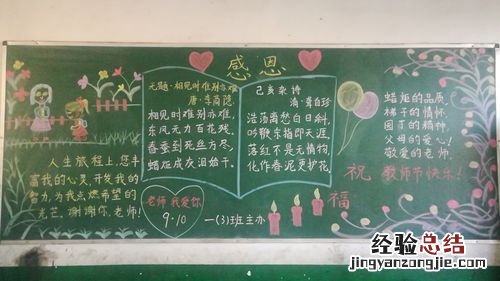 感恩
无题·相见时难别亦难
唐·李商隐
相见时难别亦难,
东风无力百花残。
春蚕到死丝方尽,
蜡炬成灰泪始干。
己亥杂诗
清·龚自珍
浩荡离愁白日斜,
吟鞭东指即天涯。
落红不是无情物,
化作春泥更护花。
蜡炬的品质,
梯子的情怀,
园丁的精神,
父母的爱心!
敬爱的老师,
祝 教师节快乐!
福
人生旅程上,您丰
富我的心灵,开发我的
智力,为我点燃希望的
光芒。谢谢你,老师!
老师 我爱你
9·10
一(3)班主办
经验总结
jingyanzongjie.com